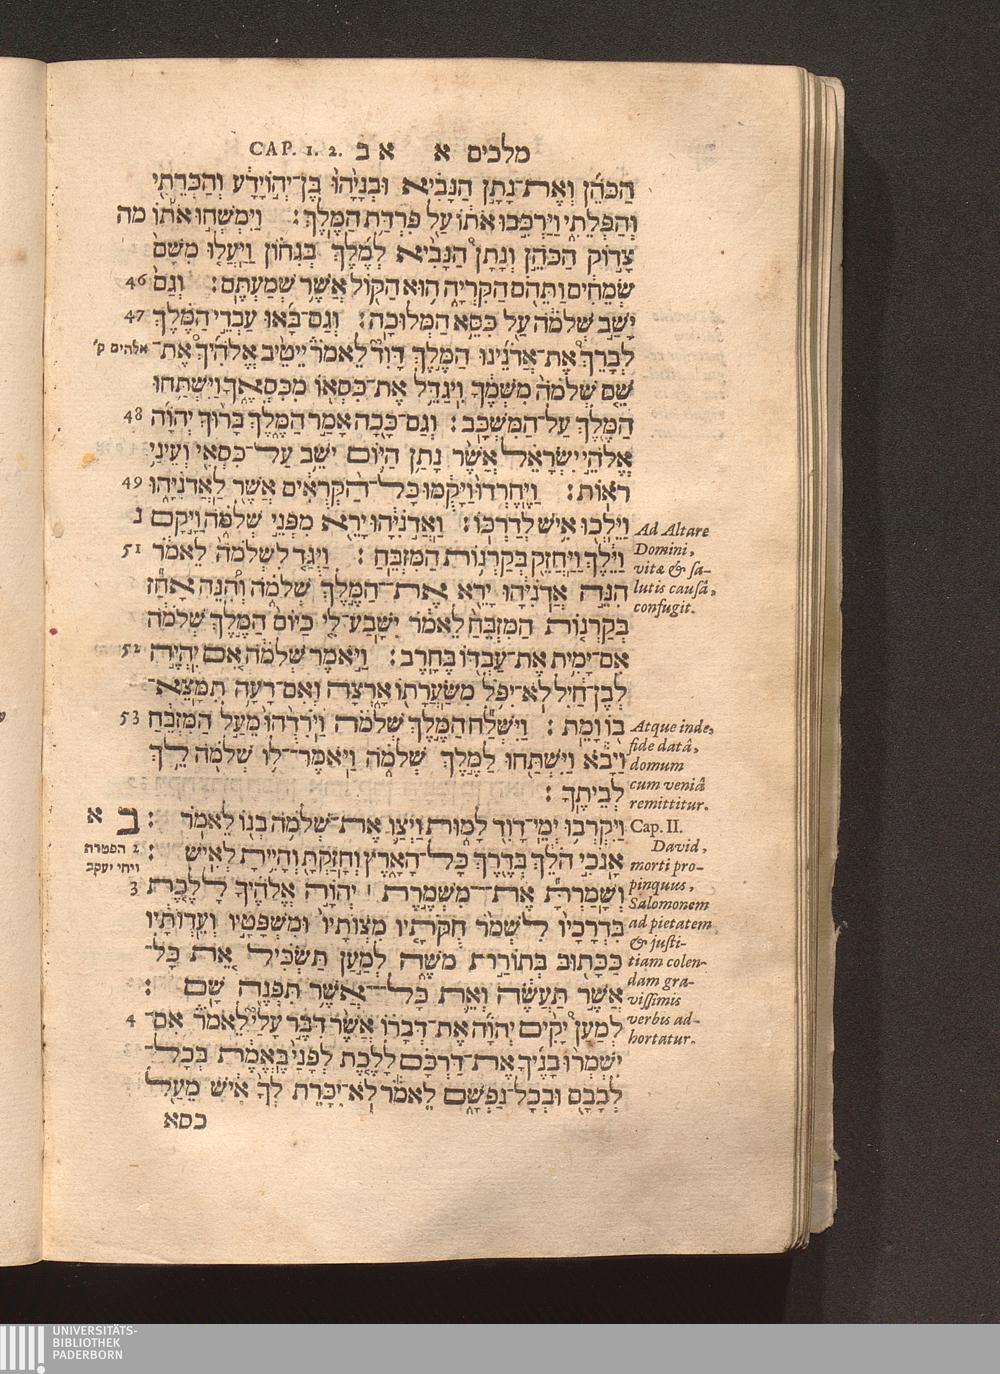 מלכים א א ב CAP. 1. 2.
הַכֹּהֵן וְאֶת־נָתָן הַנָּבִיא וּבְנָיָהוּ בֶּן־יְהוֹיָדָע וְהַכְּרֵתִי
וְהַפְּלֵתִי וַיַּרְכִּבוּ אֹתוֹ עַל פִּרְדַּת הַמֶּלֶךְ׃ וַיִּמְשְׁחוּ אֹתוֹ מה
צָדוֹק הַכֹּהֵן וְנָתָן הַנָּבִיא לְמֶלֶךְ בְּגִחוֹן וַיַּעֲלוּ מִשָּׁם
שְׂמֵחִים וַתֵּהֹם הַקִּרְיָה הוּא הַקּוֹל אֲשֶׁר שְׁמַעְתֶּם׃ וְגַם 46
יָשַׁב שְׁלֹמֹה עַל כִּסֵּא הַמְּלוּכָה׃ וְגַם־בָּאוּ עַבְדֵי הַמֶּלֶךְ 47
לְבָרֵךְ אֶת־אֲדֹנֵינוּ הַמֶּלֶךְ דָּוִד לֵאמֹר יֵיטֵיב אֱלֹהֶיךָ אֶת־ אלהים ק׳
שֵׁם שְׁלֹמֹה מִשְּׁמֶךָ וִיגַדֵּל אֶת־כִּסְאוֹ מִכִּסְאֶךָ וַיִּשְׁתַּחוּ
הַמֶּלֶךְ עַל־הַמִּשְׁכָּב׃ וְגַם־כָּכָה אָמַר הַמֶּלֶךְ בָּרוּךְ יְהוָה 48
אֱלֹהֵי יִשְׂרָאֵל אֲשֶׁר נָתַן הַיּוֹם יֹשֵׁב עַל־כִּסְאִי וְעֵינַי
רֹאוֹת׃ וַיֶּחֶרְדוּ וַיָּקֻמוּ כָּל־הַקְּרֻאִים אֲשֶׁר לַאֲדֹנִיָּהוּ 49
וַיֵּלְכוּ אִישׁ לְדַרְכּוֹ׃ וַאֲדֹנִיָּהוּ יָרֵא מִפְּנֵי שְׁלֹמֹה וַיָּקָם נ
וַיֵּלֶךְ וַיַּחֲזֵק בְּקַרְנוֹת הַמִּזְבֵּחַ׃ וַיֻּגַּד לִשְׁלֹמֹה לֵאמֹר 51
הִנֵּה אֲדֹנִיָּהוּ יָרֵא אֶת־הַמֶּלֶךְ שְׁלֹמֹה וְהִנֵּה אָחַז
בְּקַרְנוֹת הַמִּזְבֵּחַ לֵאמֹר יִשָּׁבַע־לִי כַיּוֹם הַמֶּלֶךְ שְׁלֹמֹה
אִם־יָמִית אֶת־עַבְדּוֹ בֶּחָרֶב׃ וַיֹּאמֶר שְׁלֹמֹה אִם יִהְיֶה 52
לְבֶן־חַיִל לֹא־יִפֹּל מִשַּׂעֲרָתוֹ אָרְצָה וְאִם־רָעָה תִמָּצֵא־
בוֹ וָמֵת׃ וַיִּשְׁלַח הַמֶּלֶךְ שְׁלֹמֹה וַיֹּרִדֻהוּ מֵעַל הַמִּזְבֵּחַ 53
וַיָּבֹא וַיִּשְׁתַּחוּ לַמֶּלֶךְ שְׁלֹמֹה וַיֹּאמֶר־לוֹ שְׁלֹמֹה לֵךְ
לְבֵיתֶךָ׃
וַיִּקְרְבוּ יְמֵי־דָוִד לָמוּת וַיְצַו אֶת־שְׁלֹמֹה בְנוֹ לֵאמֹר׃ ב א
אָנֹכִי הֹלֵךְ בְּדֶרֶךְ כָּל־הָאָרֶץ וְחָזַקְתָּ וְהָיִיתָ לְאִישׁ׃ 2 הפטרת
ויחי יעקב
וְשָׁמַרְתָּ אֶת־מִשְׁמֶרֶת׀ יְהוָה אֱלֹהֶיךָ לָלֶכֶת 3
בִּדְרָכָיו לִשְׁמֹר חֻקֹּתָיו מִצְוֹתָיו וּמִשְׁפָּטָיו וְעֵדְוֹתָיו
כַּכָּתוּב בְּתוֹרַת מֹשֶׁה לְמַעַן תַּשְׂכִּיל אֵת כָּל־
אֲשֶׁר תַּעֲשֶׂה וְאֵת כָּל־אֲשֶׁר תִּפְנֶה שָׁם׃
לְמַעַן יָקִים יְהוָה אֶת־דְּבָרוֹ אֲשֶׁר דִּבֶּר עָלַי לֵאמֹר אִם־ 4
יִשְׁמְרוּ בָנֶיךָ אֶת־דַּרְכָּם לָלֶכֶת לְפָנַי בֶּאֱמֶת בְּכָל־
לְבָבָם וּבְכָל־נַפְשָׁם לֵאמֹר לֹא־יִכָּרֵת לְךָ אִישׁ מֵעַל
כסא
Ad Altare
Domini,
vitæ & sa-
lutis causâ,
confugit.
Atque inde,
fide datâ,
domum
cum veniâ
remittitur.
Cap. II.
David,
morti pro-
pinquus,
Salomonem
ad pietatem
& justi-
tiam colen-
dam gra-
vissimis
verbis ad-
hortatur.
UNIVERSITÄTS-
BIBLIOTHEK
PADERBORN